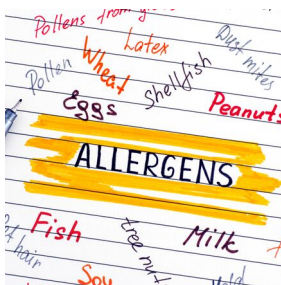 Pollens from
Latex
Dust mites
Wheat
Pollen
Shellfish
Eggs
Peanuts
ALLERGENS
Fish
tree nut
Milk
hair
Soy